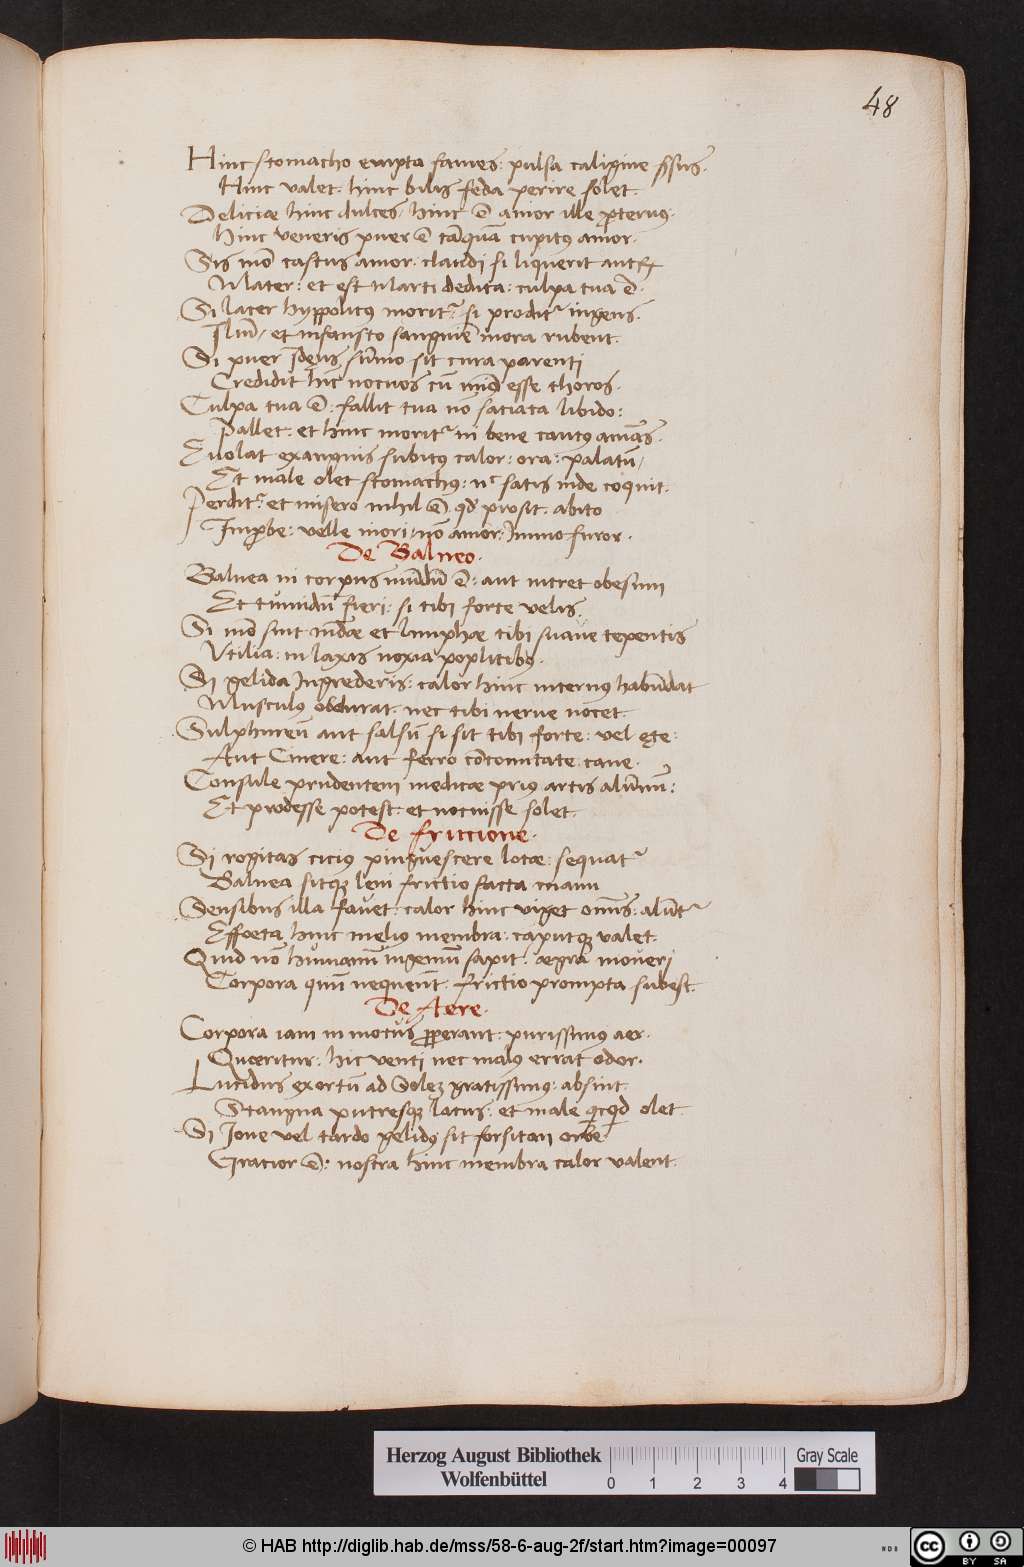 48
Hinc stomacho empta fames: pulsa caligine sẽsus.
Hinc valet: hinc bilis feda perire solet.
Deliciæ hinc dulces/ hinc ẽ amor ille ꝓteruus.
Hinc veneris puer ẽ tãquã cupitus amor.
Sis mõ castus amor: claudi si liquerit antꝝ
Mater: et est Marti dedita: culpa tua ẽ.
Si lacer hyppolitus moritᷣ: si proditᷣ ingens.
Iliũ/ et infausto sanguiẽ mora rubent.
Si puer Ideus sũmo sit cura parenti
Credidit hĩc nocuos cũ esse thoros.
Culpa tua ẽ: fallit tua nõ satiata libido:
Pallet: et hinc moritᷣ ni bene cautus amãs.
Euolat exanguis subitus calor: ora: palatũ/
Et male olet stomachus: nᶜ satis inde coquit.
Perditᷣ et misero nihil ẽ. qđ prosit. abito
Imꝓbe: velle mori/ nõ amor: Immo furor.
De Balneo.
Balnea ni corpus mũdũ ẽ: aut intret obesum
Et tumidũ fieri: si tibi forte velis.
Si mõ sint mũdæ et lymphæ tibi suaue tepentis
Vtilia: in laxis noxia poplitibus.
Si gelida Ingrederis: calor hinc internus habũdat
Musculus obdurat: nec tibi nerue nocet.
Sulphureũ aut salsũ si sit tibi forte: vel ęre:
Aut Cinere: aut ferro cõtconitate: cane.
Consule prudentem medicæ prius artis alũnũ:
Et prodesse potest: et nocuisse solet.
De friccione.
Si rogitas cicius pinguescere lotæ: sequatᷣ
Balnea sitqꝫ leni frictio facta manu
Sensibus illa fauet: calor hinc viget omĩs: alũtᷣ
Effoeta hinc melius membra: caputqꝫ valet.
Quid nõ humanũ ingeniũ sapit: ægra moueri
Corpora quũ nequeũt: frictio prompta subest.
De Aere.
Corpora iam in motus ꝓꝑerant: purissimus aer.
Quæritur: hic venti nec malus errat odor.
Lucidus exortũ ad Soleꝫ gratissimus: absint.
Stangna putresqꝫ lacus: et male qͥcqͥd olet.
Si Ioue vel tardo gelidus sit forsitan orbe
Gratior ẽ: nostra hinc membra calor valent.
Herzog August Bibliothek
Wolfenbüttel
0 1 2 3 4
Gray Scale
© HAB http://diglib.hab.de/mss/58-6-aug-2f/start.htm?image=00097
cc BY SA